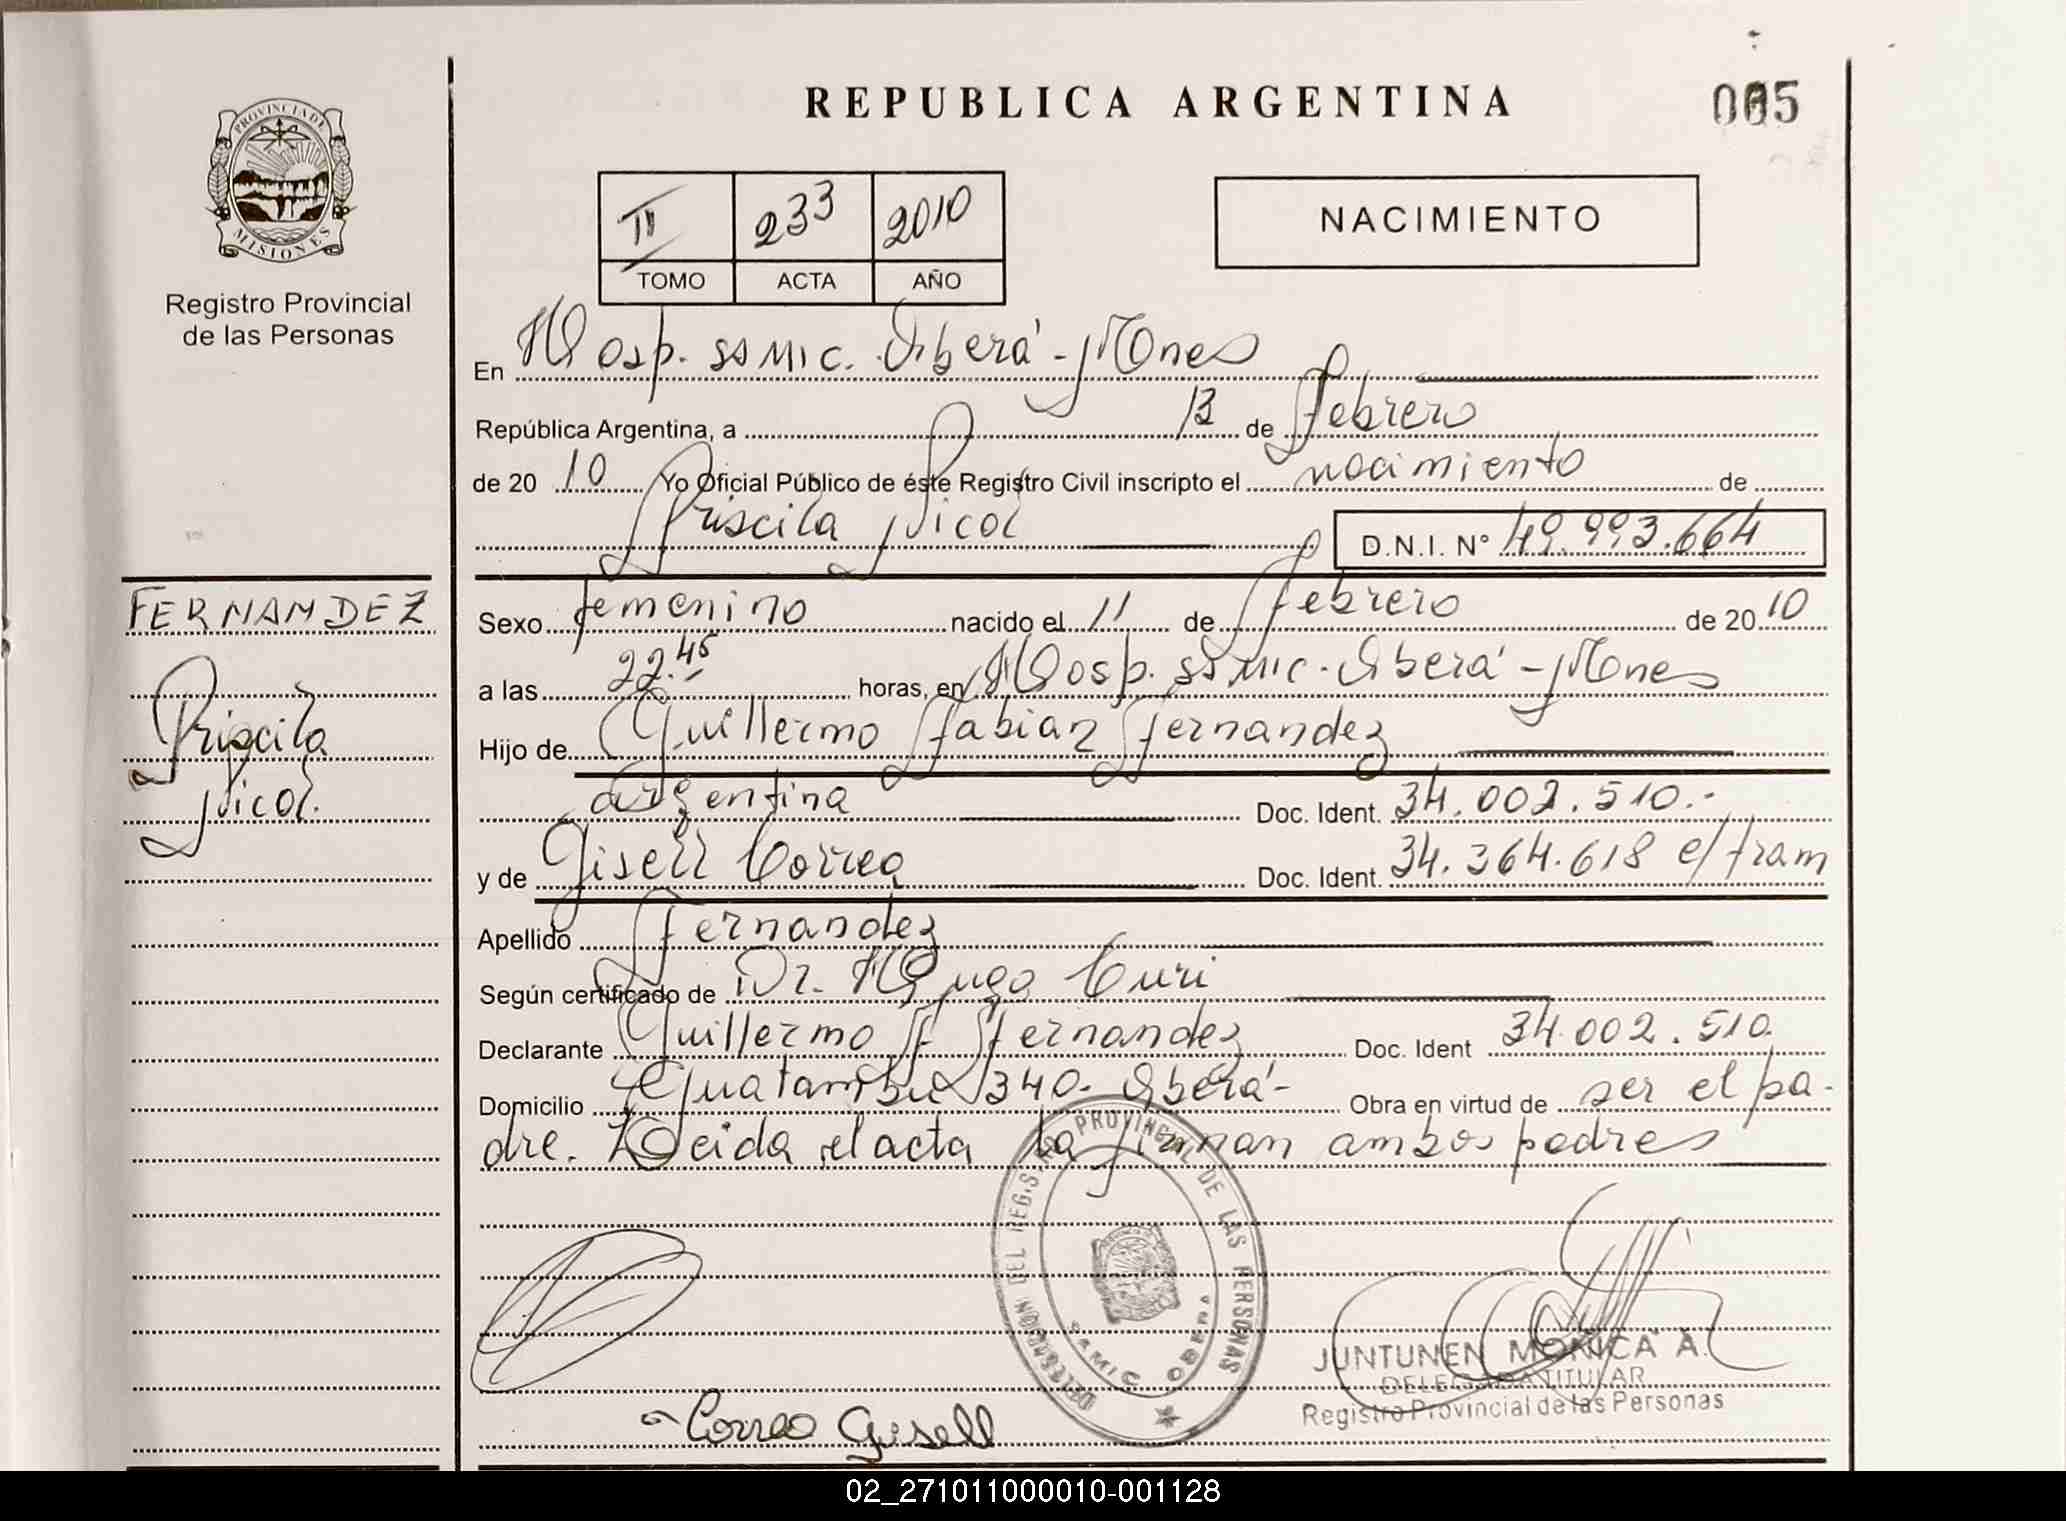 REPUBLICA ARGENTINA
005
PROVINCIA DE
MISIONES
Registro Provincial
de las Personas
II 233 2010
TOMO ACTA AÑO
NACIMIENTO
En Hosp. SAMIC. Oberá - Mnes
República Argentina, a 13 de Febrero
de 2010 Yo Oficial Público de éste Registro Civil inscripto el nacimiento de
Priscila Nicol
D.N.I. N° 49.993.664
FERNANDEZ
Priscila
Nicol.
Sexo femenino nacido el 11 de Febrero de 2010
a las 22.45 horas, en Hosp. SAMIC. Oberá - Mnes
Hijo de Guillermo Fabian Fernandez
argentina Doc. Ident. 34.002.510.-
y de Gisell Correa Doc. Ident. 34.364.618 e/tram
Apellido Fernandez
Según certificado de Dr. Hugo Curi
Declarante Guillermo F Fernandez Doc. Ident 34.002.510
Domicilio Guatambu 340- Oberá- Obra en virtud de ser el pa-
dre. Leida el acta la firman ambos padres
DELEGACION DEL REGISTRO PROVINCIAL DE LAS PERSONAS
SAMIC OBERA
JUNTUNEN MONICA A.
DELEGADA TITULAR
Registro Provincial de las Personas
Correa Gisell
02_271011000010-001128